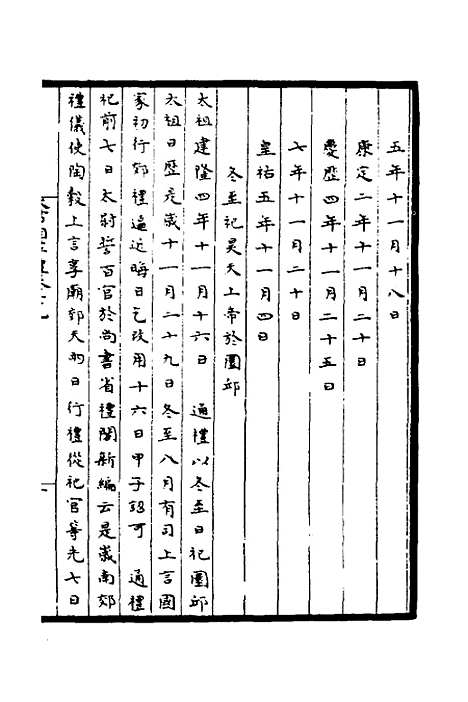 五年十一月十八日
康定二年十一月二十日
慶歷四年十一月二十五日
七年十一月二十日
皇祐五年十一月四日
冬至祀昊天上帝於圜邱
太祖建隆四年十一月十六日 通禮以冬至日祀圜邱
太祖日歷是歲十一月二十九日冬至八月有司上言國
家初行郊禮逼近晦日乞改用十六日甲子詔可 通禮
祀前七日太尉誓百官於尚書省禮閣新編云是歲南郊
禮儀使陶穀上言享廟郊天兩日行禮從祀官等先七日